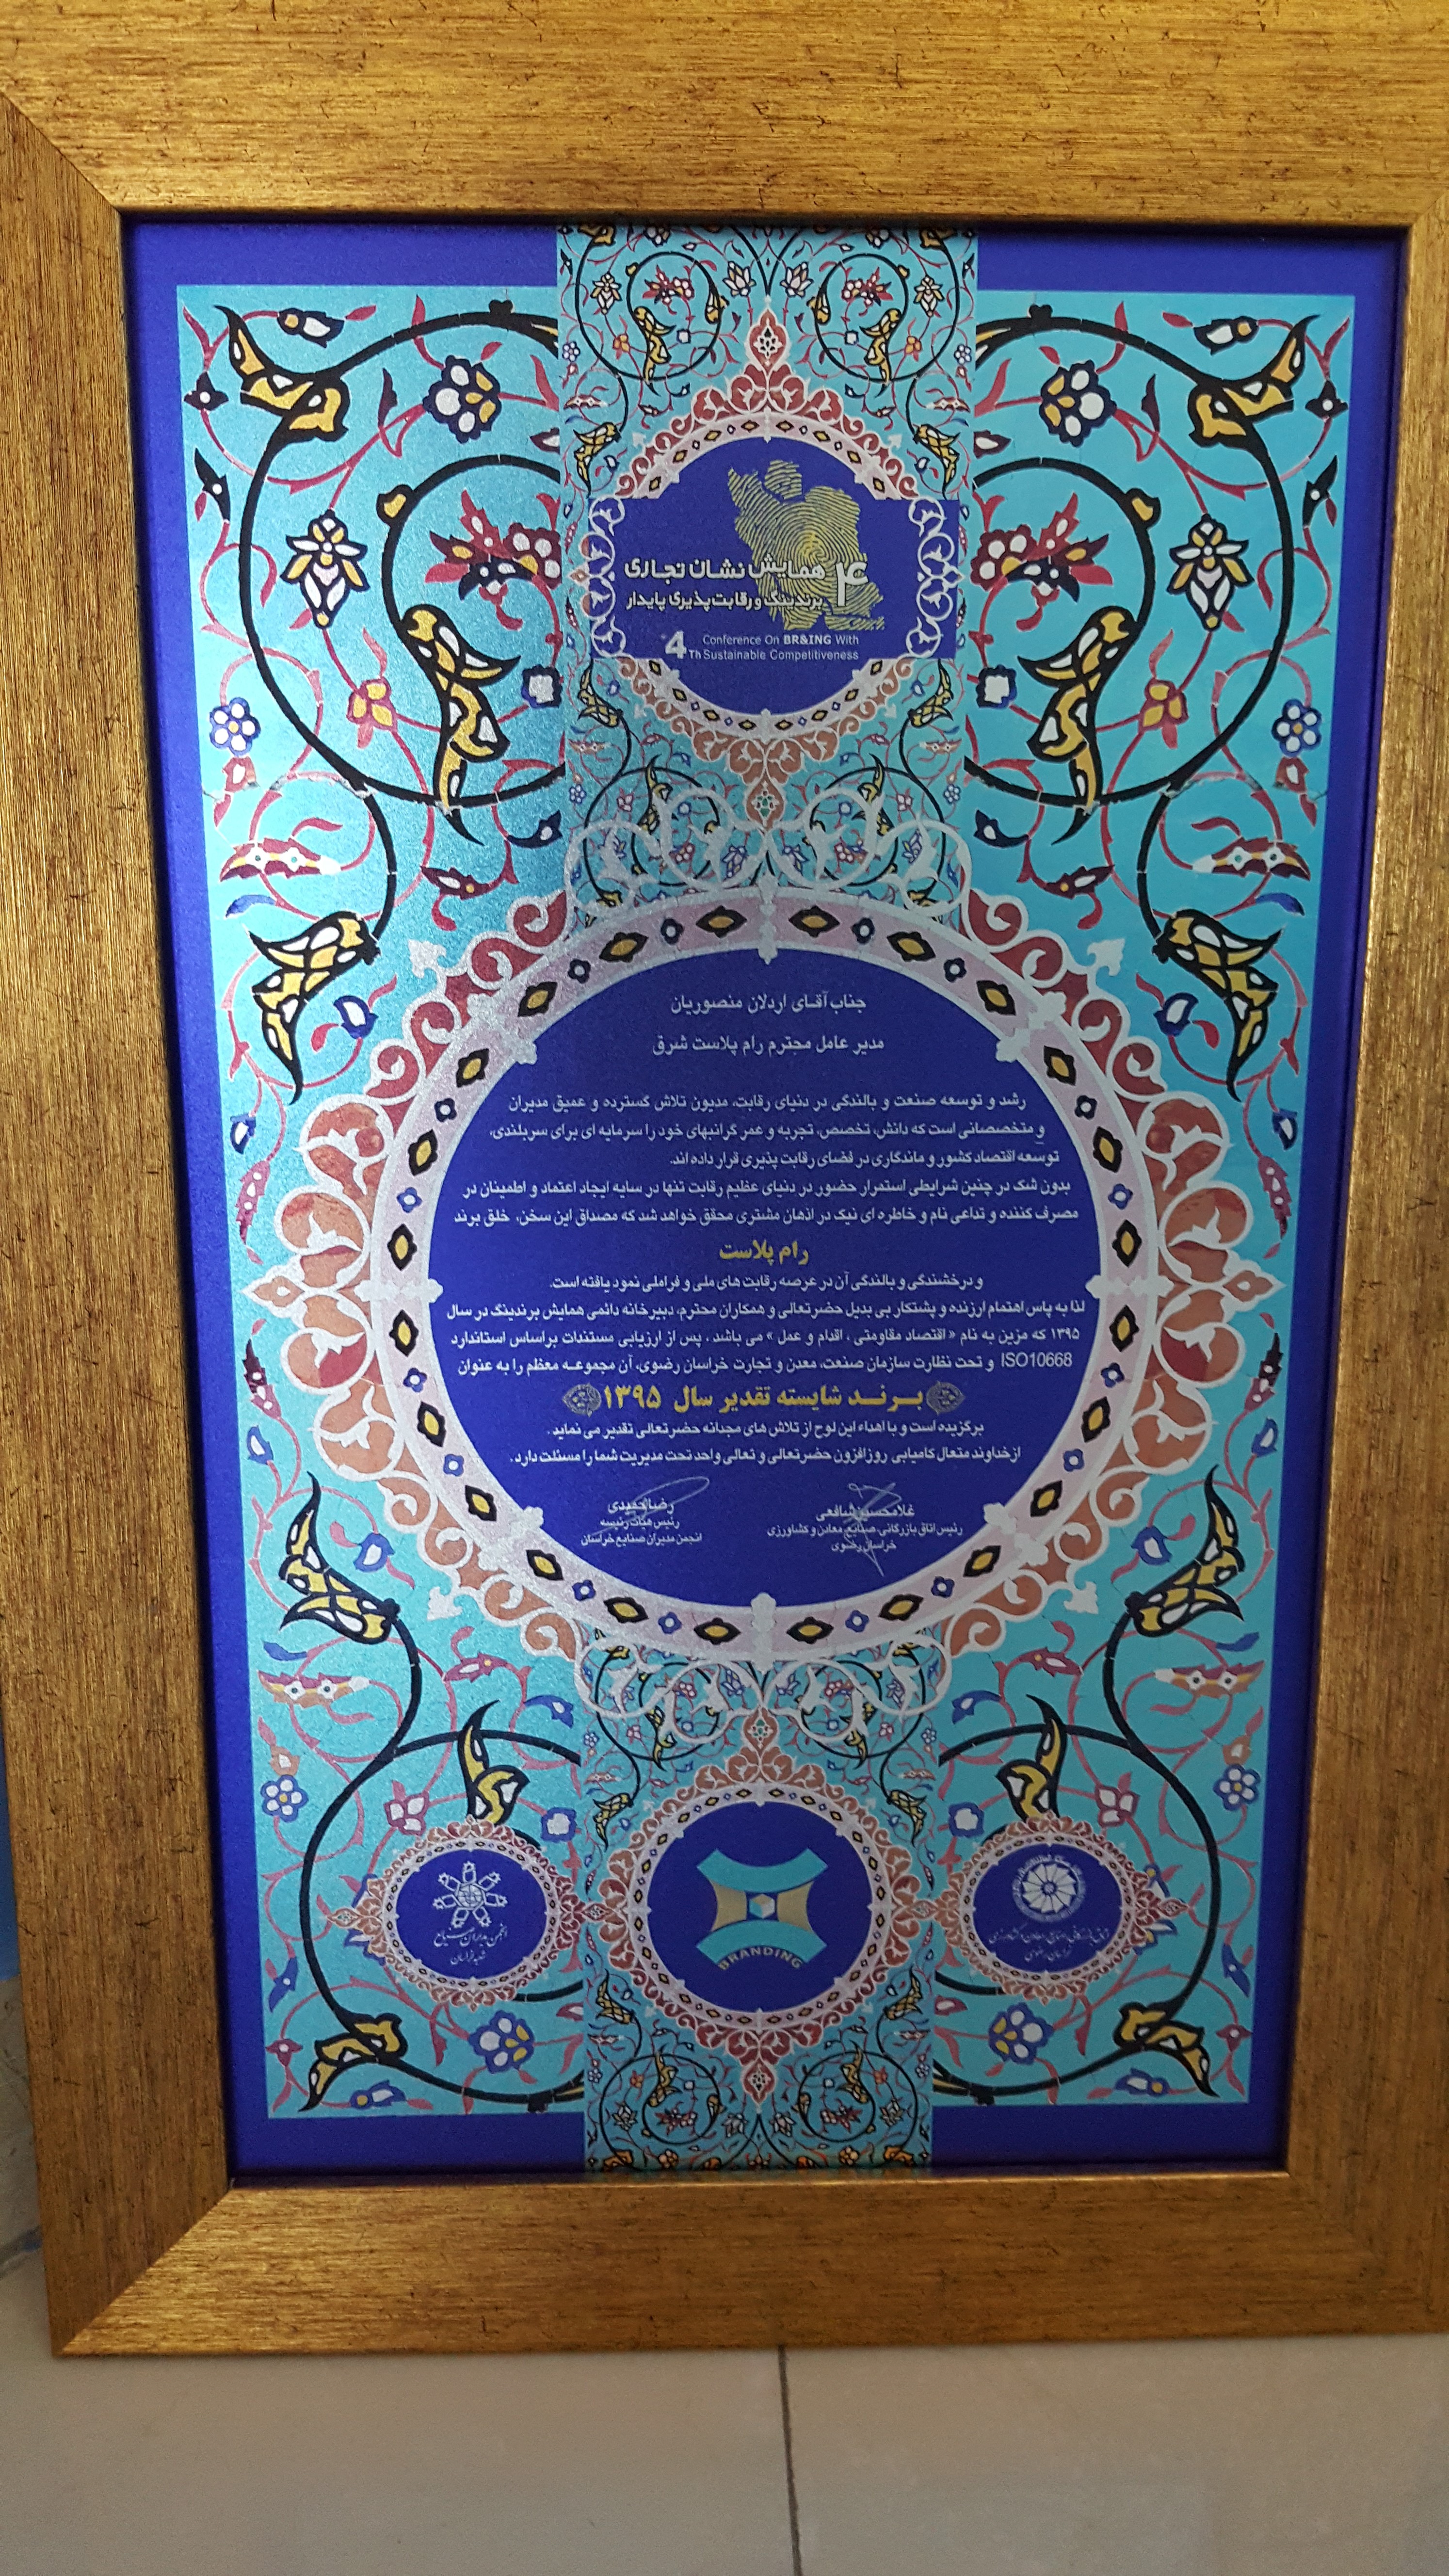 ۴ همایش نشان تجاری
برندینگ و رقابت‌پذیری پایدار
4Th Conference On BR&ING With
Sustainable Competitiveness
جناب آقای اردلان منصوریان
مدیر عامل محترم رام پلاست شرق
رشد و توسعه صنعت و بالندگی در دنیای رقابت، مدیون تلاش گسترده و عمیق مدیران
و متخصصانی است که دانش، تخصص، تجربه و عمر گرانبهای خود را سرمایه ای برای سربلندی،
توسعه اقتصاد کشور و ماندگاری در فضای رقابت پذیری قرار داده اند.
بدون شک در چنین شرایطی استمرار حضور در دنیای عظیم رقابت تنها در سایه ایجاد اعتماد و اطمینان در
مصرف کننده و تداعی نام و خاطره ای نیک در اذهان مشتری محقق خواهد شد که مصداق این سخن، خلق برند
رام پلاست
و درخشندگی و بالندگی آن در عرصه رقابت های ملی و فراملی نمود یافته است.
لذا به پاس اهتمام ارزنده و پشتکار بی بدیل حضرتعالی و همکاران محترم، دبیرخانه دائمی همایش برندینگ در سال
۱۳۹۵ که مزین به نام « اقتصاد مقاومتی ، اقدام و عمل » می باشد ، پس از ارزیابی مستندات براساس استاندارد
ISO10668 و تحت نظارت سازمان صنعت، معدن و تجارت خراسان رضوی، آن مجموعه معظم را به عنوان
برند شایسته تقدیر سال ۱۳۹۵
برگزیده است و با اهداء این لوح از تلاش های مجدانه حضرتعالی تقدیر می نماید .
از خداوند متعال کامیابی روزافزون حضرتعالی و تعالی واحد تحت مدیریت شما را مسئلت دارد .
غلامحسین شافعی
رئیس اتاق بازرگانی، صنایع، معادن و کشاورزی
خراسان رضوی
رضا حمیدی
رئیس هیأت رئیسه
انجمن مدیران صنایع خراسان
انجمن مدیران صنایع
BRANDING
خراسان رضوی